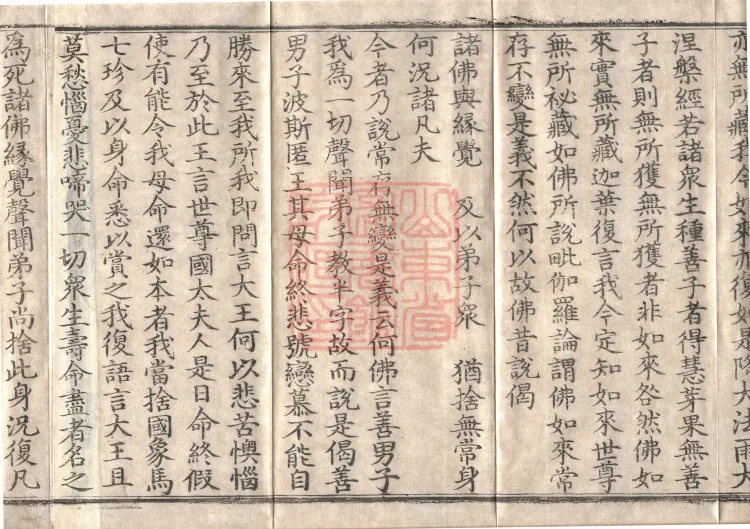 亦無所藏我今如來亦復如是降大法雨大
涅槃經若諸眾生種善子者得慧芽果無善
子者則無所獲無所獲者非如來咎然佛如
來實無所藏迦葉復言我今定知如來世尊
無所祕藏如佛所說毗伽羅論謂佛如來常
存不變是義不然何以故佛昔說偈
諸佛與緣覺 及以弟子眾 猶捨無常身
何況諸凡夫
今者乃說常存無變是義云何佛言善男子
我爲一切聲聞弟子教半字故而說是偈善
男子波斯匿王其母命終悲號戀慕不能自
勝來至我所我即問言大王何以悲苦懊惱
乃至於此王言世尊國太夫人是日命終假
使有能令我母命還如本者我當捨國象馬
七珍及以身命悉以賞之我復語言大王且
莫愁惱憂悲啼哭一切眾生壽命盡者名之
為死諸佛緣覺聲聞弟子尚捨此身況復凡